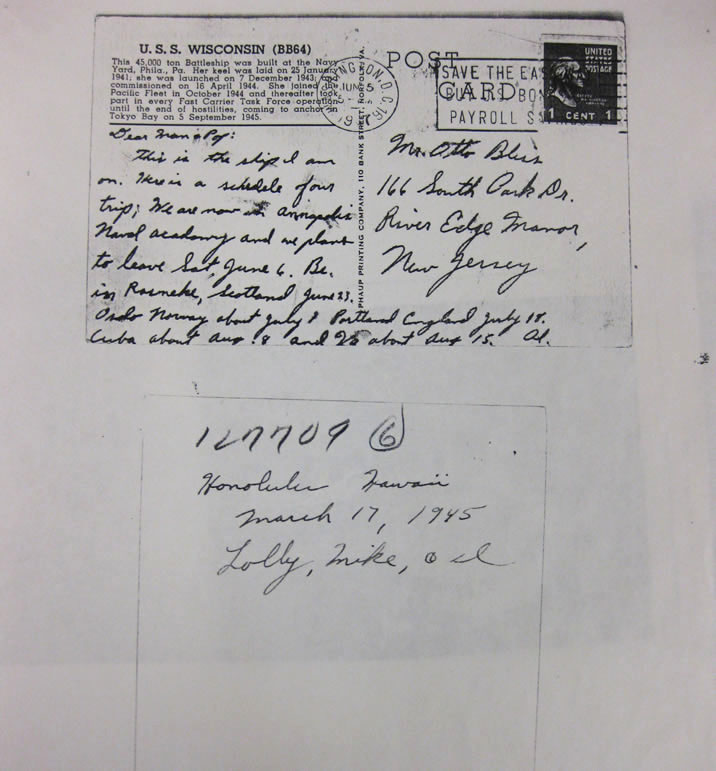 U. S. S. WISCONSIN (BB64)
This 45,000 ton Battleship was built at the Navy
Yard, Phila., Pa. Her keel was laid on 25 January
1941; she was launched on 7 December 1943; and
commissioned on 16 April 1944. She joined the
Pacific Fleet in October 1944 and thereafter took
part in every Fast Carrier Task Force operation
until the end of hostilities, coming to anchor in
Tokyo Bay on 5 September 1945.
Dear Mom & Pop:
This is the ship I am
on. Here is a schedele of our
trip; We are now in Annapolis
Naval academy and we plan
to leave Sat, June 6. Be.
in Scotland June 23.
Oslo Norway about July 8 Portland England July 18.
Cuba about Aug. 8 and about Aug 15. Al.
PHAUP PRINTING COMPANY, 110 BANK STREET, NORFOLK, VA.
POST
CARD
JUN 5
D.C.
SAVE THE EA
BUY U.S. BON
PAYROLL S
UNITED
STATES
POSTAGE
1 CENT 1
Mr. Otto Bliss
166 South Park Dr.
River Edge Manor,
New Jersey
127709 6
Honolulu Hawaii
March 17, 1945
Lolly, Mike,